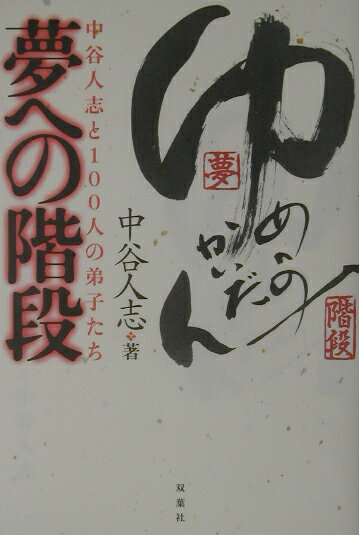 ゆ
めへの
かいだ
ん
夢
階段
中谷人志❖著
中谷人志と100人の弟子たち
夢への階段
双葉社